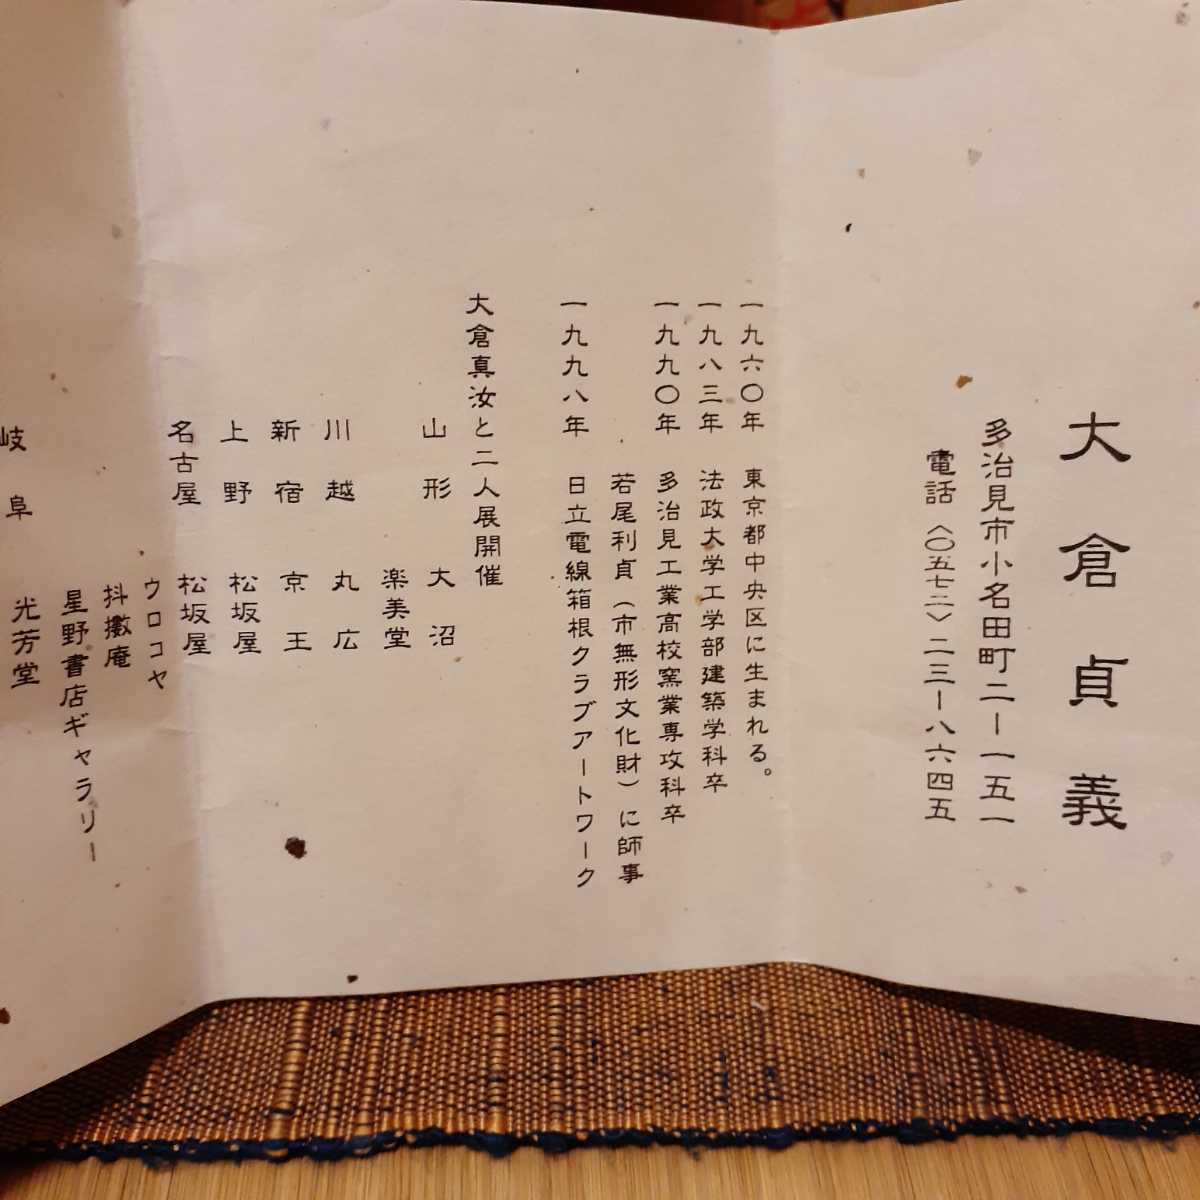 大倉貞義
多治見市小名田町二ー一五一
電話〈〇五七二〉二三ー八六四五
一九六〇年 東京都中央区に生まれる。
一九八三年 法政大学工学部建築学科卒
一九九〇年 多治見工業高校窯業専攻科卒
若尾利貞（市無形文化財）に師事
一九九八年 日立電線箱根クラブアートワーク
大倉真汝と二人展開催
山形 大沼
楽美堂
川越 丸広
新宿 京王
上野 松坂屋
名古屋 松坂屋
ウロコヤ
抖擻庵
星野書店ギャラリー
岐阜 光芳堂